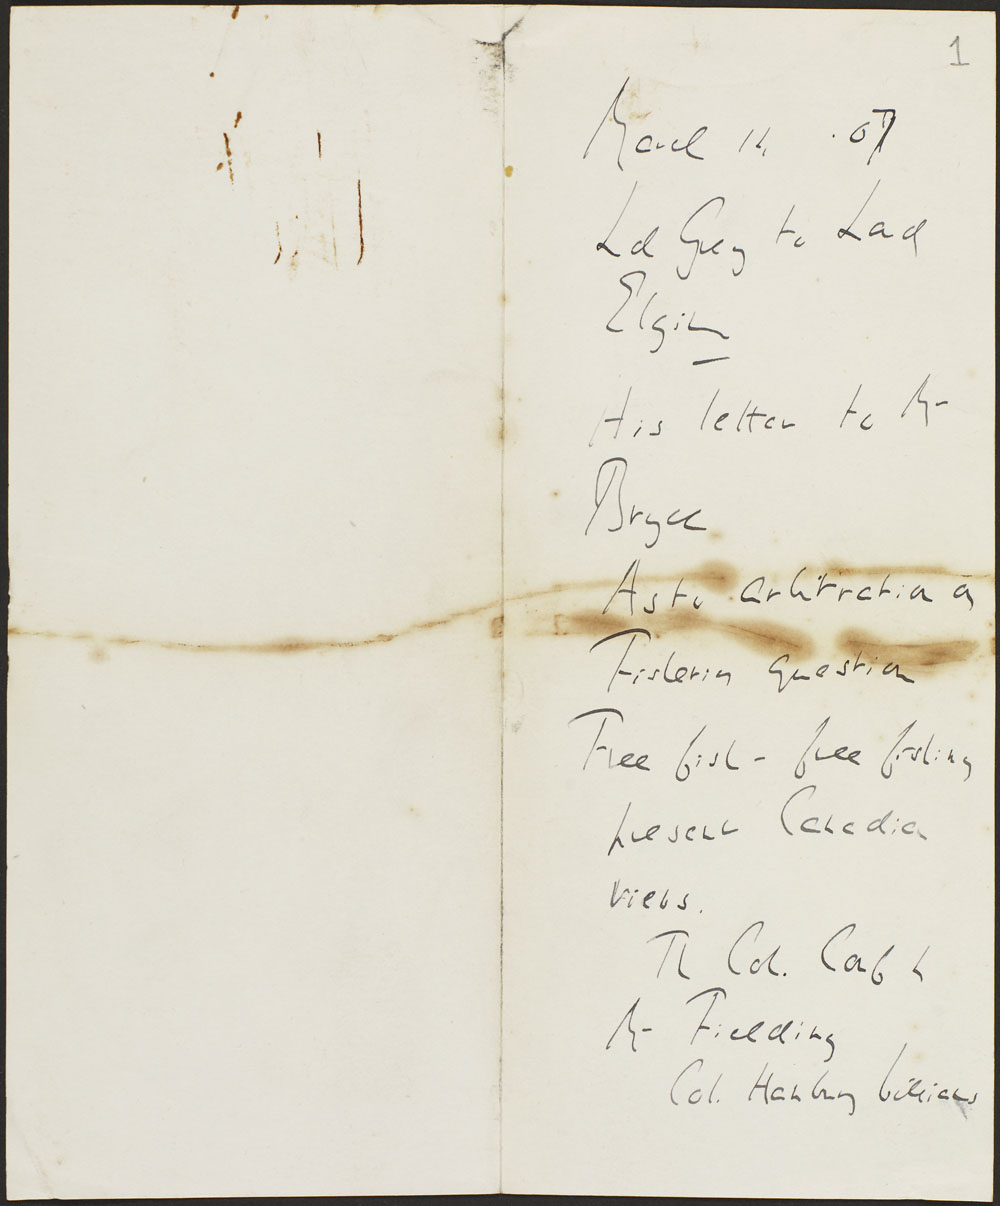 1
March 14 . 07
Ld Grey to Lord
Elgin
His letter to Mr
Bryce
As to arbitration on
Fishering question
Free fish - free fishing
present Canadian
views.
The Col. Conf
Mr Fielding
Col. Hanbury Williams